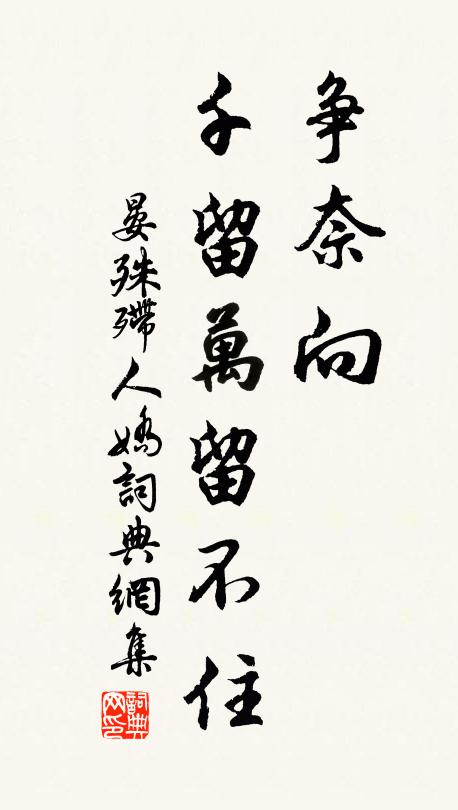 争奈向
千留萬留不住
晏殊殢人嬌詞典網集
詞典网印